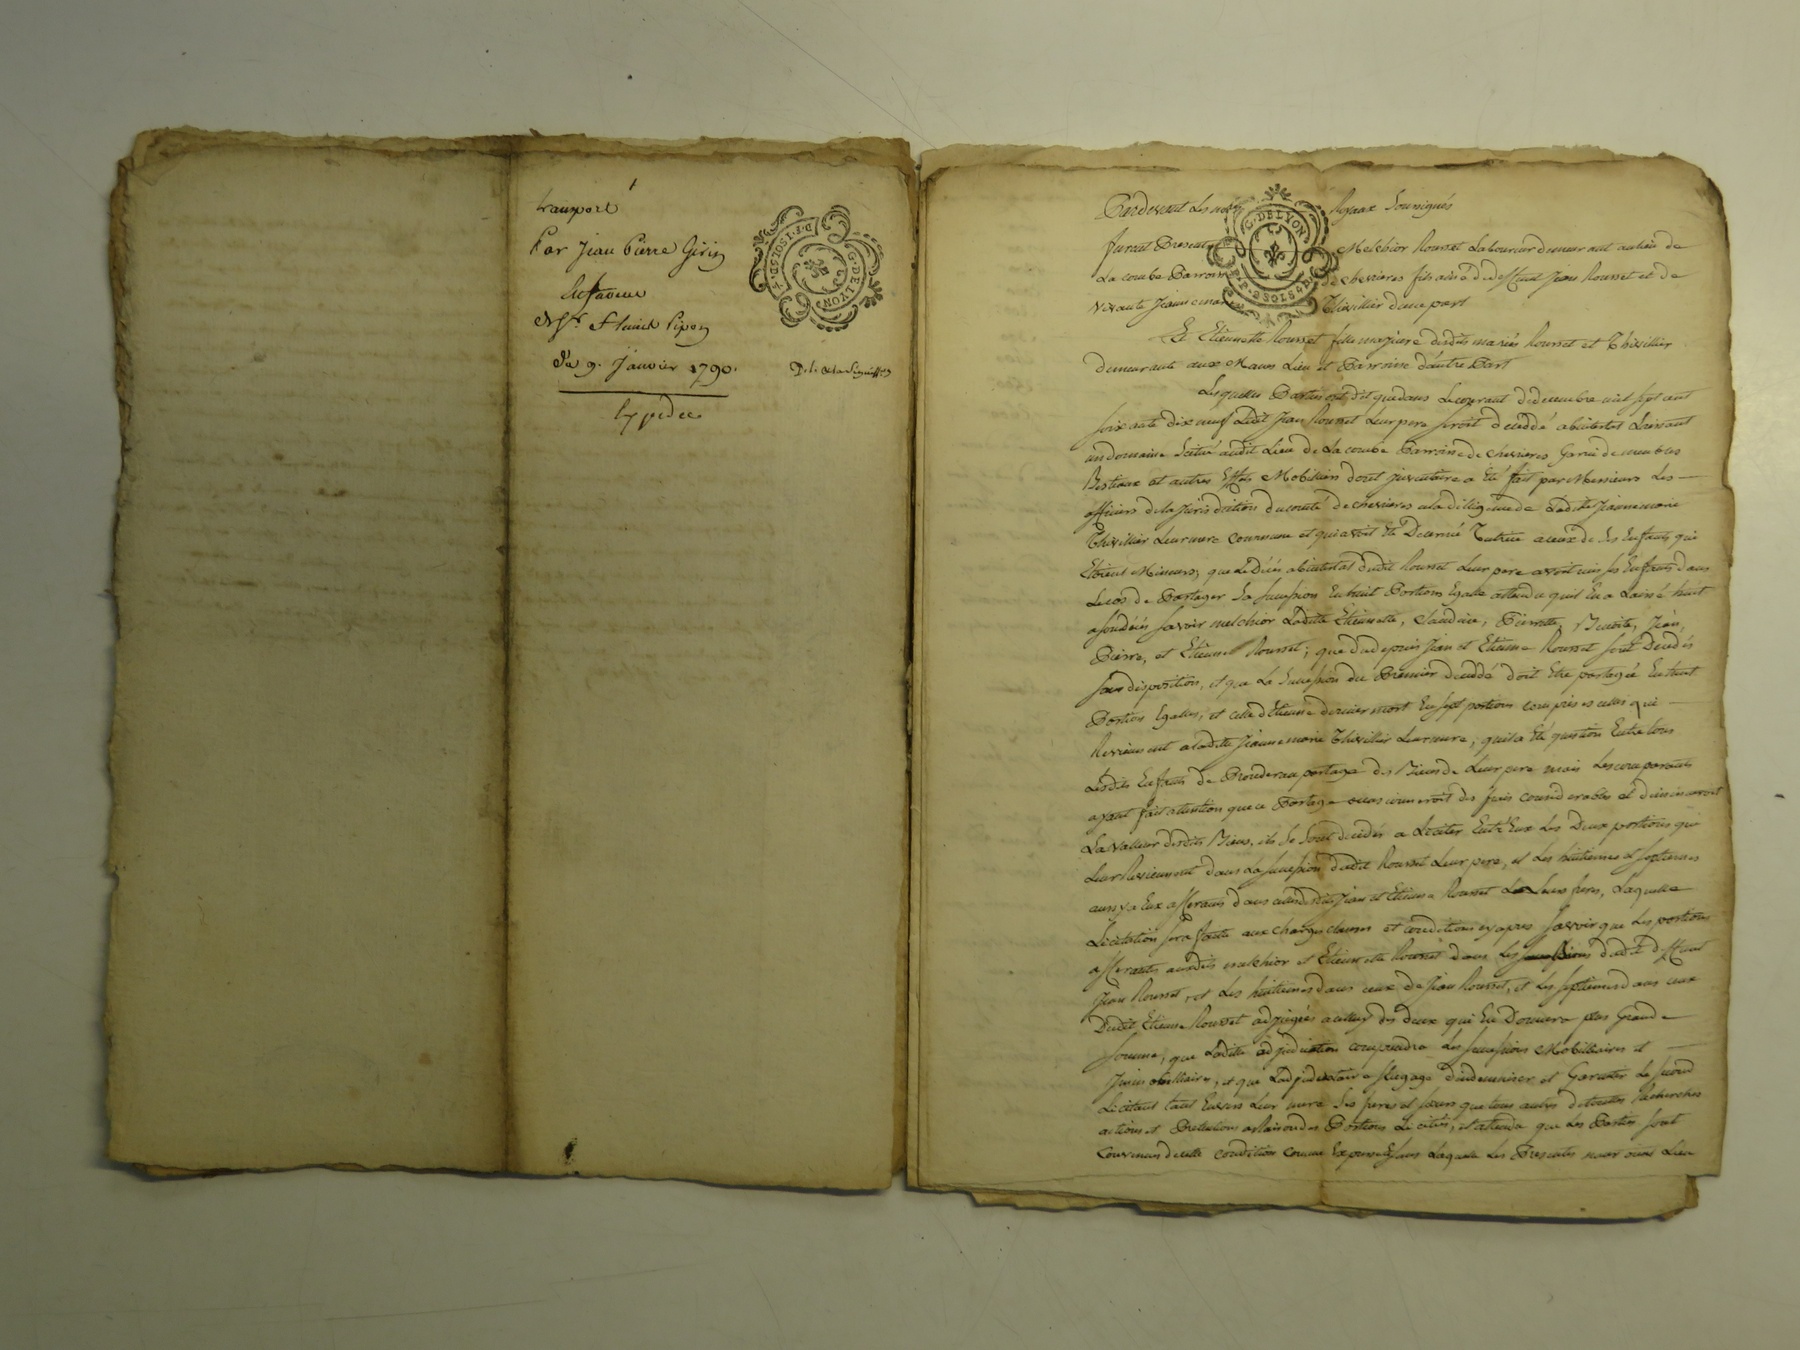 transport
Par Jean Pierre Girin
En faveur
Mr. Pipon
Du 9. Janvier 1790.
Expédiée
G. DE LYON
Pardevant Les no[tres] Royaux Soussignés
furent Presents Melchior Rousset Laboureur demeurant au lieu de
La combe Parroisse de chevrieres fils ainé de deffunt Jean Rousset et de
vivante Jeanne marie Thivillier d'une part
Et Etiennette Rousset fille majeure desdits mariés Rousset et Thivillier
demeurante aux Mêmes Lieu et Parroisse d'autre Part
Lesquelles Parties ont dit que dans Le courant de decembre mil sept cent
soixante dix neuf Ledit Jean Rousset Leur pere seroit decedé abintestat Laissant
un domaine Scitué audit Lieu de La combe Parroisse de chevrieres Garni de meubles
Bestiaux et autres Effets Mobiliers dont jnventaire a Eté fait par Messieurs Les
officiers de la Jurisdiction du comté de chevrieres a la dilligence de Ladite Jeanne marie
Thivillier Leur mere commune et qui avoit Eté Decernée Tutrice a ceux de Ses Enfants qui
Etoient Mineurs; que Le Décés abintestat dudit Rousset Leur pere avoit mis ses Enfants dans
Le cas de Partager Sa Succession En huit Portions Egalle attendu quil En a Laissé huit
a son décés savoir melchior Ladite Etiennette, Claudine, Pierrette, Benoite, Jean,
Pierre, et Etienne Rousset; que du depuis Jean et Etienne Rousset sont Decedés
sans disposition, et que La Succession du Premier decedé doit Etre partagée En huit
Portions Egalles, et celle d'Etienne dernier mort En sept portions comprises celles qui
Reviennent a ladite Jeanne marie Thivillier Leur mere; quil a Eté question Entre tous
Lesdits Enfants de Proceder au partage des Biens de Leur pere mais Les comparants
ayant fait attention que ce Partage occasionneroit des frais considerables et diminueroit
La valleur desdits Biens, ils se sont decidés a Liciter Entr'Eux Les Deux portions qui
Leur Reviennent dans La Succession dudit Rousset Leur pere, et Les huitiemes et septiemes
aussy a Eux afferants dans celles desdits Jean et Etienne Rousset Leurs freres, Laquelle
Licitation sera faite aux charges clauses et conditions cy apres Savoir que Les portions
afferantes auxdits melchior et Etiennette Rousset dans Les dudit deffunt
Jean Rousset, et Les huitiemes dans ceux de Jean Rousset, et Les septiemes dans ceux
Dudit Etienne Rousset adjugées a celluy des deux qui En Donnera plus Grande
Somme, que Ladite adjudication comprendra Les Successions Mobiliaires et
Jmmobiliaires, et que Ladjudicataire s'engage d'indemniser et Garantir Le second
Licitant tant Envers Leur mere Ses freres et sœurs que tous autres de toutes Recherches
actions et Pretentions a Raison des Portions Licitées, et attendu que Les Parties sont
Convenues de cette condition comme Expresse et sans Laquelle Les Presentes n'auroient Lieu